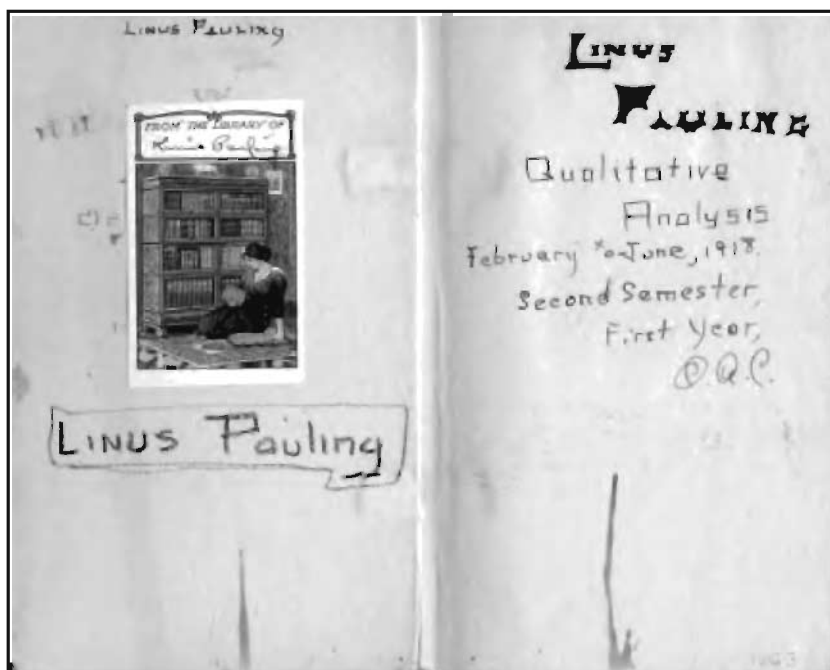 LINUS PAULING
FROM THE LIBRARY OF
Linus Pauling
LINUS Pauling
LINUS
PAULING
Qualitative
Analysis
February to June, 1918.
Second Semester,
First Year,
O.A.C.